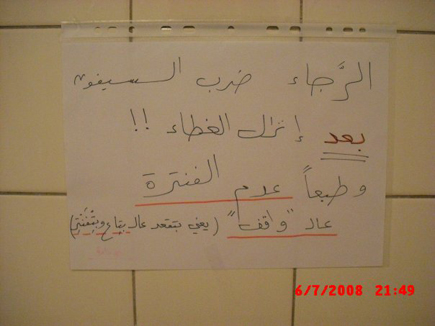 الرَّجاء ضرب السيفون
بعد إنزال الغطاء !!
وطبعاً عدم الفنترة
عالـ "واقف" (يعني بتقعد عالـ بتاع وبتْفَنْتِر)
6/7/2008 21:49